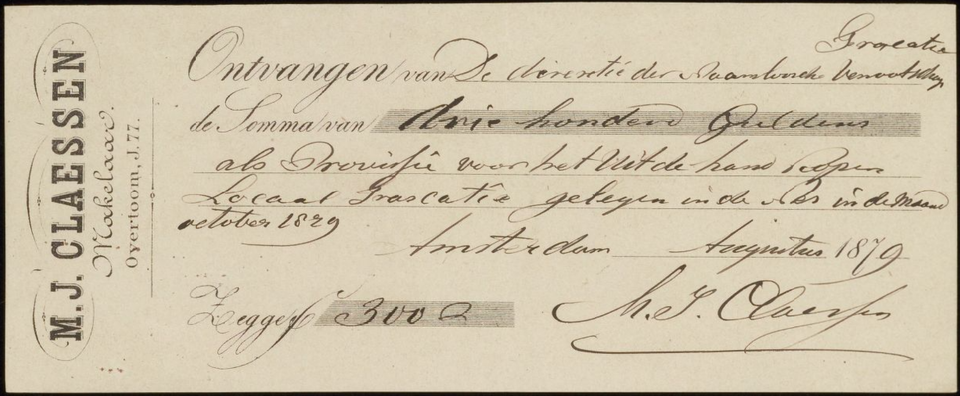 M. J. CLAESSEN
Makelaar.
Overtoom, J. 77.
Ontvangen van De directie der Naamlooze Vennootschap
de Somma van drie honderd Guldens
als Provissie voor het Uit de hand koopen
Locaal Frascatie gelegen in de Nes in de Maand
october 1879
Amsterdam Augustus 1879
Zegge f 300
M. J. Claessen